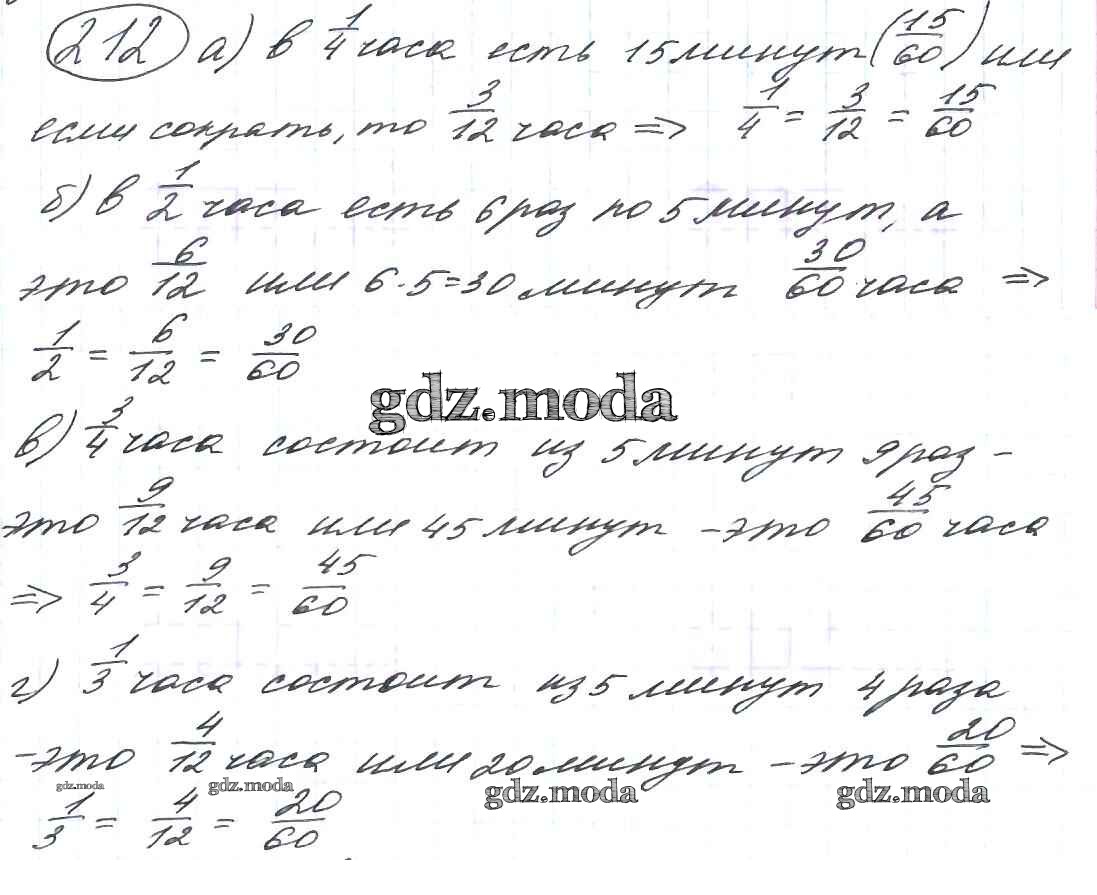 212 а) в 1/4 часа есть 15 минут (15/60) или
если сократь, то 3/12 часа => 1/4 = 3/12 = 15/60
б) в 1/2 часа есть 6 раз по 5 минут, а
это 6/12 или 6·5=30 минут 30/60 часа =>
1/2 = 6/12 = 30/60
gdz.moda
в) 3/4 часа состоит из 5 минут 9 раз -
это 9/12 часа или 45 минут - это 45/60 часа
=> 3/4 = 9/12 = 45/60
г) 1/3 часа состоит из 5 минут 4 раза
- это 4/12 часа или 20 минут - это 20/60 =>
gdz.moda gdz.moda gdz.moda gdz.moda
1/3 = 4/12 = 20/60